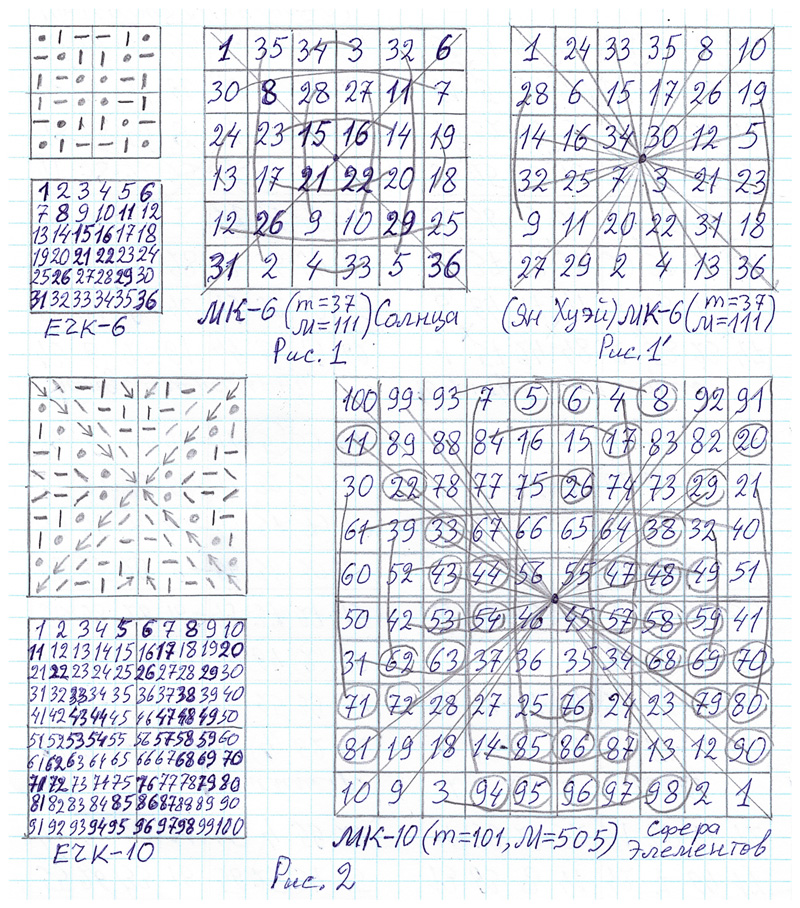 1 2 3 4 5 6
7 8 9 10 11 12
13 14 15 16 17 18
19 20 21 22 23 24
25 26 27 28 29 30
31 32 33 34 35 36
ЕЧК-6
1 35 34 3 32 6
30 8 28 27 11 7
24 23 15 16 14 19
13 17 21 22 20 18
12 26 9 10 29 25
31 2 4 33 5 36
МК-6 (m=37 M=111) Солнца
Рис. 1
1 24 33 35 8 10
28 6 15 17 26 19
14 16 34 30 12 5
32 25 7 3 21 23
9 11 20 22 31 18
27 29 2 4 13 36
(Ян Хуэй) МК-6 (m=37 M=111)
Рис. 1'
1 2 3 4 5 6 7 8 9 10
11 12 13 14 15 16 17 18 19 20
21 22 23 24 25 26 27 28 29 30
31 32 33 34 35 36 37 38 39 40
41 42 43 44 45 46 47 48 49 50
51 52 53 54 55 56 57 58 59 60
61 62 63 64 65 66 67 68 69 70
71 72 73 74 75 76 77 78 79 80
81 82 83 84 85 86 87 88 89 90
91 92 93 94 95 96 97 98 99 100
ЕЧК-10
100 99 93 7 5 6 4 8 92 91
11 89 88 84 16 15 17 83 82 20
30 22 78 77 75 26 74 73 29 21
61 39 33 67 66 65 64 38 32 40
60 52 43 44 56 55 47 48 49 51
50 42 53 54 46 45 57 58 59 41
31 62 63 37 36 35 34 68 69 70
71 72 28 27 25 76 24 23 79 80
81 19 18 14 85 86 87 13 12 90
10 9 3 94 95 96 97 98 2 1
МК-10 (m=101, M=505) Сфера Элементов
Рис. 2